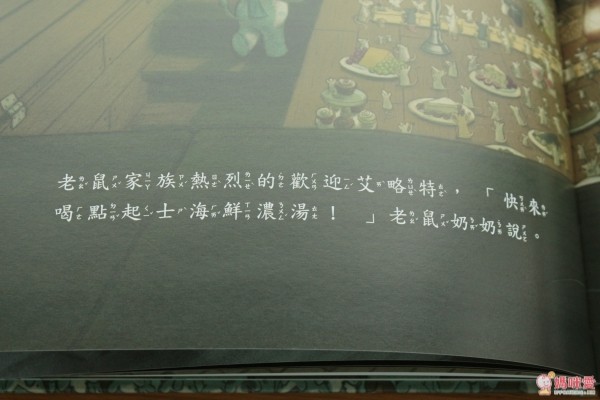 老鼠家族熱烈的歡迎艾略特，「快來
喝點起士海鮮濃湯！」老鼠奶奶說。
媽咪愛